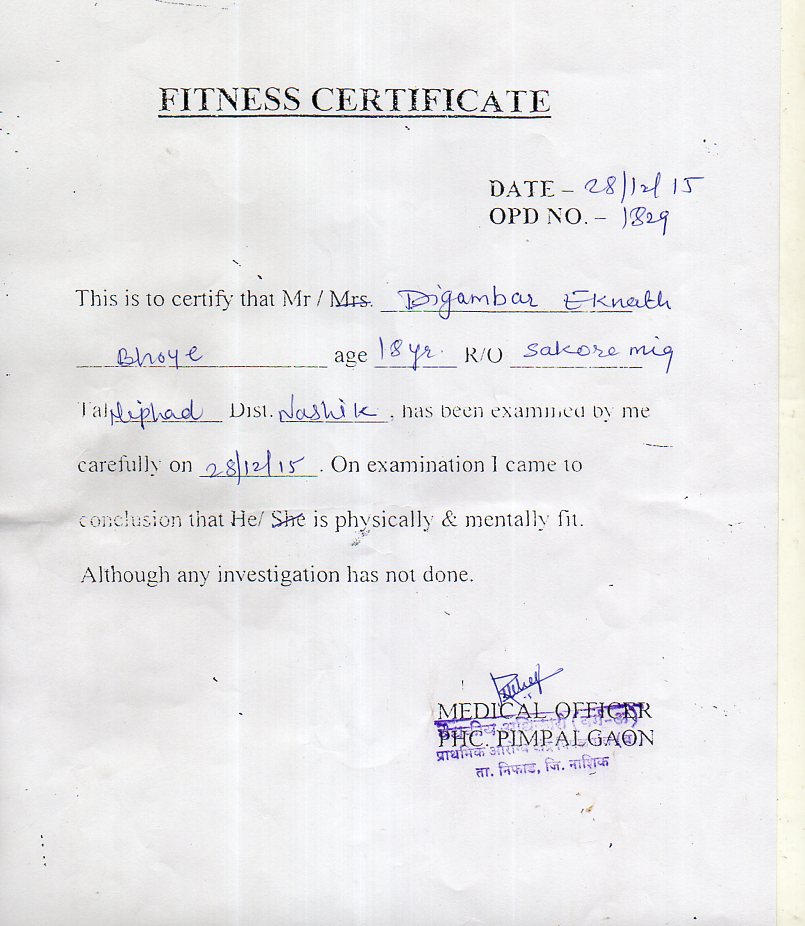 FITNESS CERTIFICATE
DATE – 28/12/15
OPD NO. – 1829
This is to certify that Mr / Mrs. Digambar Eknath
Bhoye age 18 yr. R/O Sakore mig
Tal Niphad Dist. Nashik , has been examined by me
carefully on 28/12/15 . On examination I came to
conclusion that He/ She is physically & mentally fit.
Although any investigation has not done.
MEDICAL OFFICER
PHC. PIMPALGAON
प्राथमिक आरोग्य केंद्र
ता. निफाड, जि. नाशिक